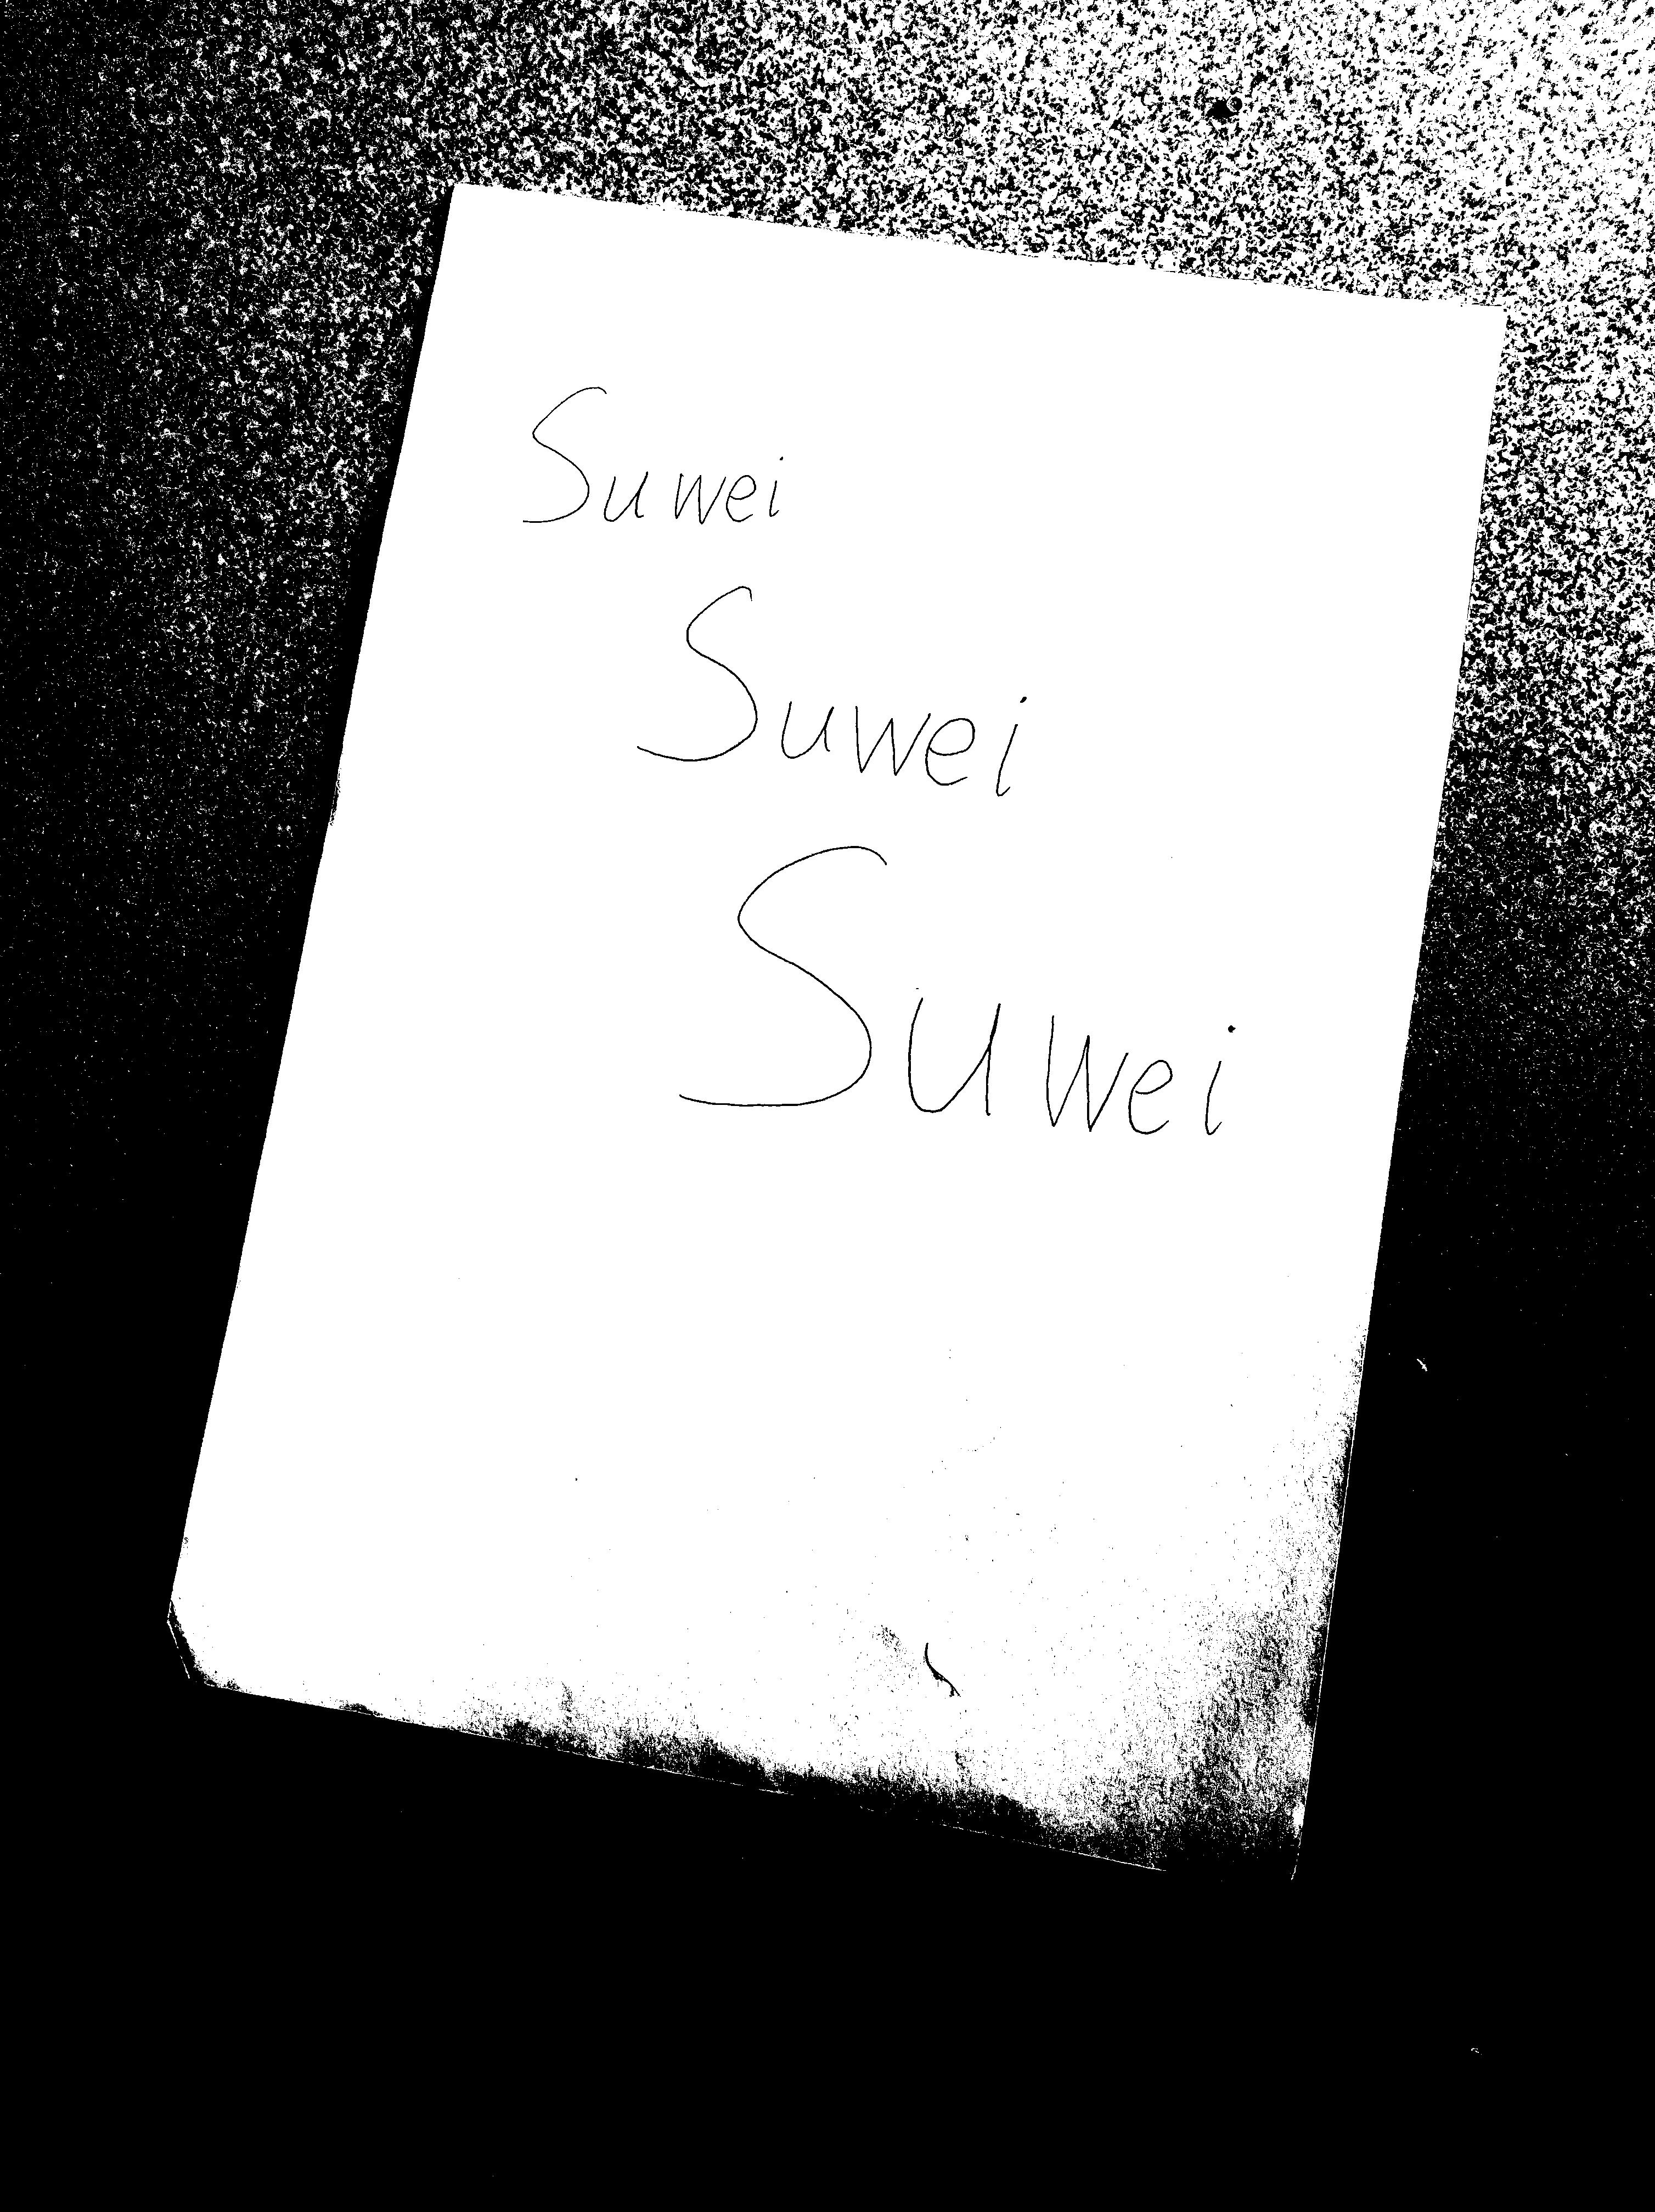 Suwei
Suwei
Suwei